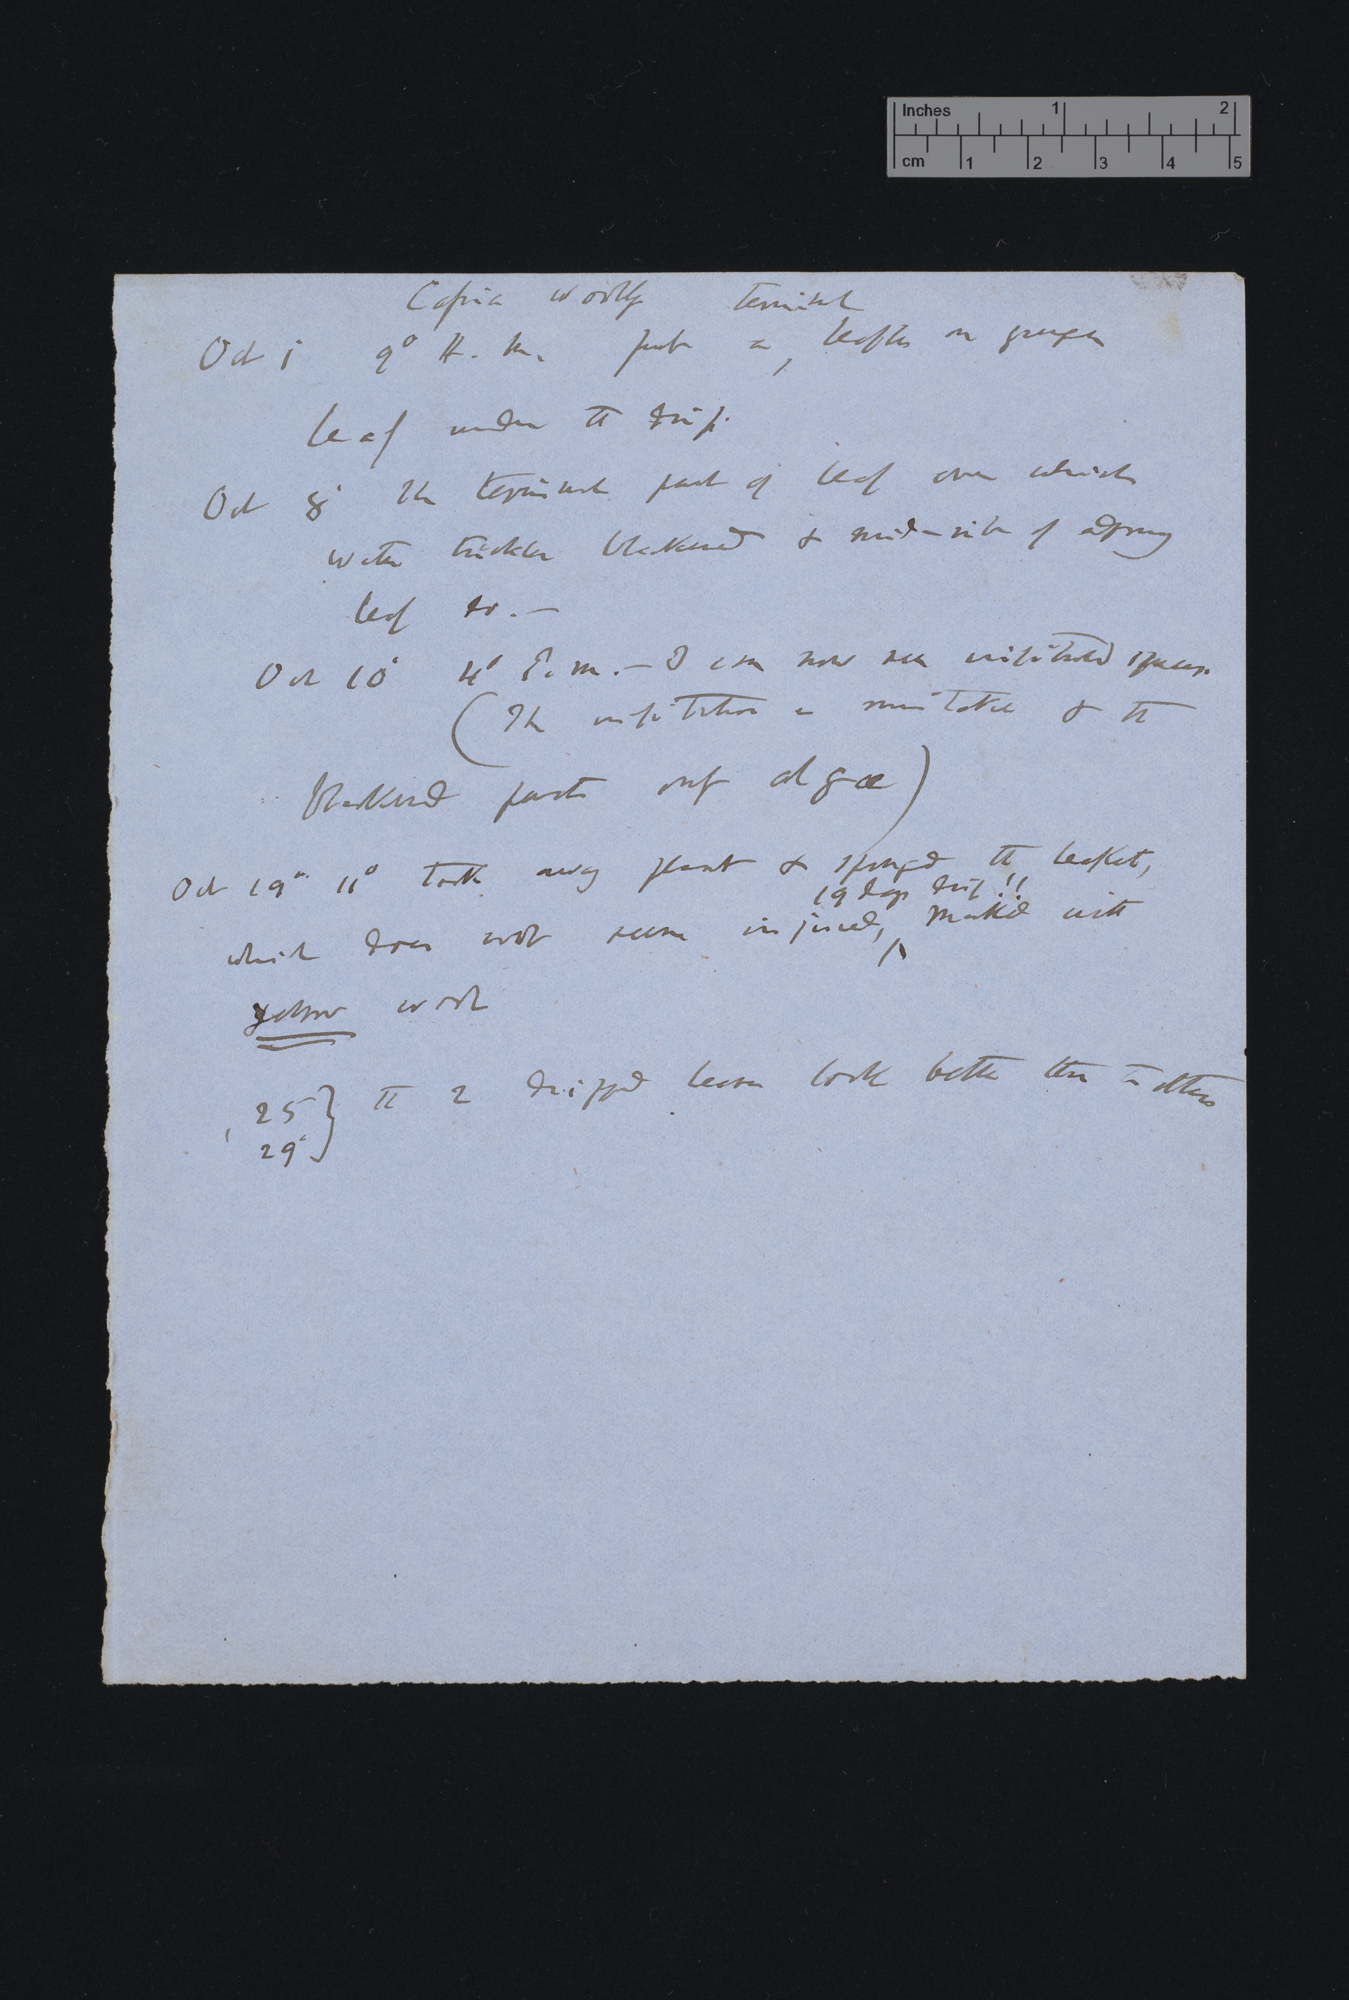 Inches 1 2
cm 1 2 3 4 5
Cassia terminal
Oct 1 9° A. m. put a leaflet on younger
leaf under the drip.
Oct 8 The terminal part of leaf over which
water trickles blackened & mid-rib of adjoining
leaf do.—
Oct 10 4° P. m.— I can now see infiltrated spaces.
(The infiltration a mistake & the
blackened parts only algæ)
Oct 19 11° took away plant & sponged the leaflet,
19 days drip!!
which does not seem injured, marked with
yellow wool
25
29 } the 2 dripped leaves look better than the others